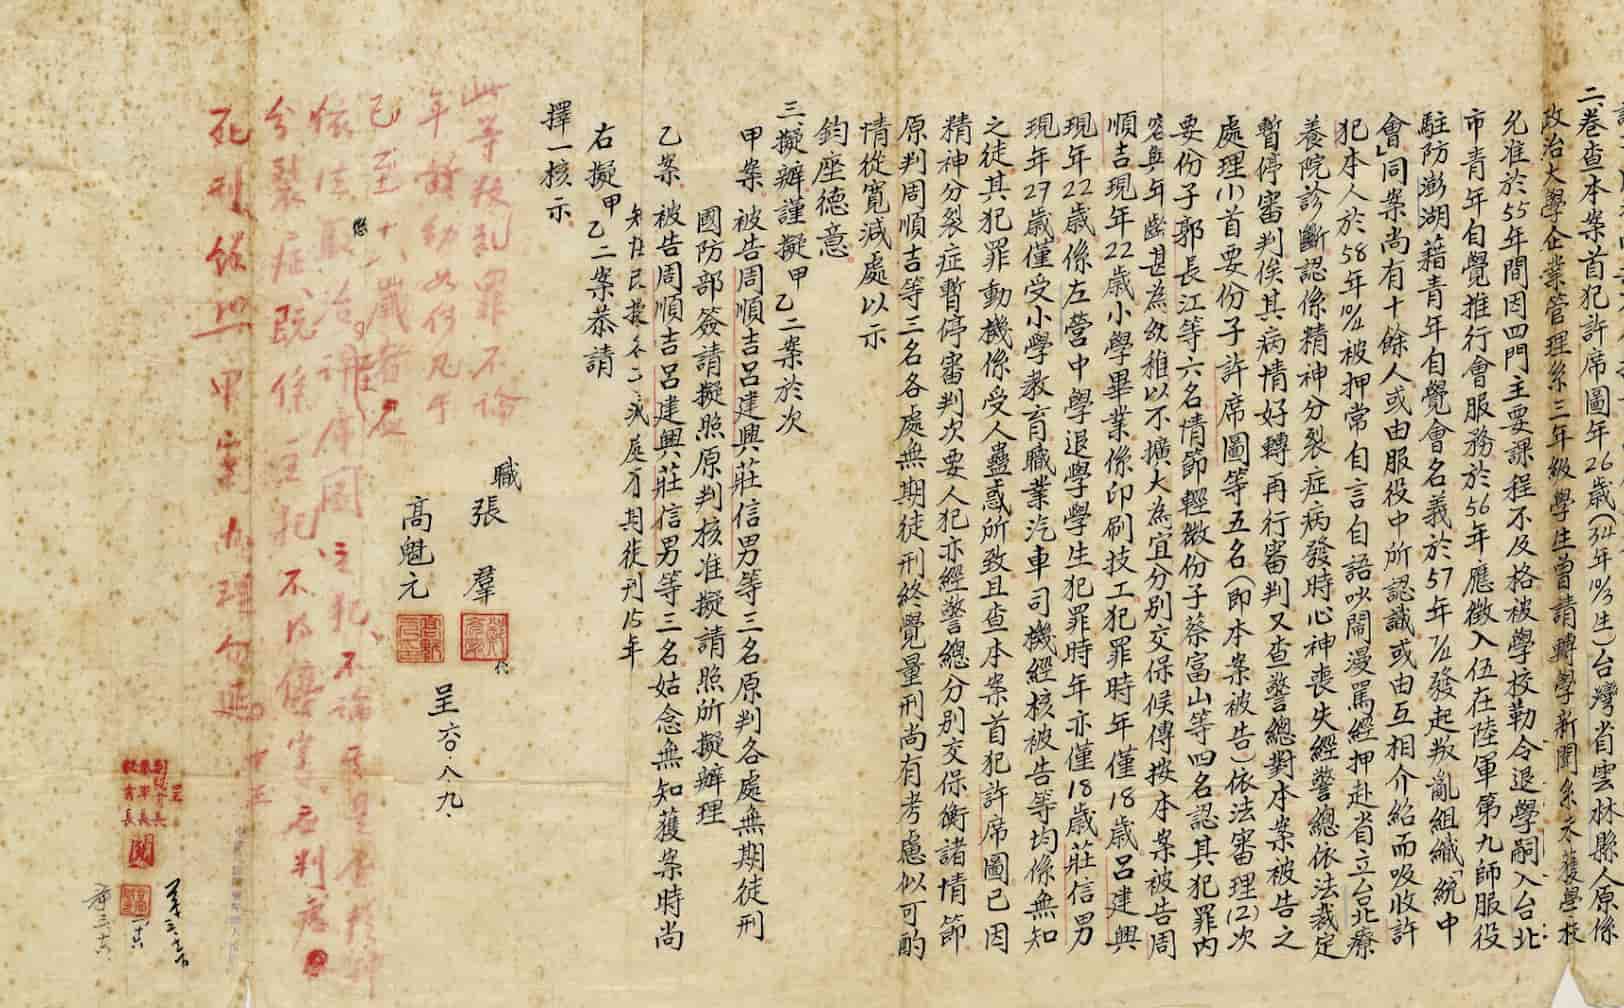 二、卷查本案首犯許席圖年26歲(34年10/3生)台灣省雲林縣人原係
政治大學企業管理系三年級學生曾請轉學新聞系未獲學校
允准於55年間因四門主要課程不及格被學校勒令退學嗣入台北
市青年自覺推行會服務於56年應徵入伍在陸軍第九師服役
駐防澎湖藉青年自覺會名義於57年7/4發起叛亂組織「統中
會」同案尚有十餘人或由服役中所認識或由互相介紹而吸收許
犯本人於58年10/4被押常自言自語吵鬧漫罵經押赴省立台北療
養院診斷認係精神分裂症病發時心神喪失經警總依法裁定
暫停審判俟其病情好轉再行審判又查警總對本案被告之
處理(1)首要份子許席圖等五名(即本案被告)依法審理(2)次
要份子郭長江等六名情節輕微份子蔡富山等四名認其犯罪內
容與年齡甚為幼稚以不擴大為宜分別交保候傳按本案被告周
順吉現年22歲小學畢業係印刷技工犯罪時年僅18歲呂建興
現年22歲係左營中學退學學生犯罪時年亦僅18歲莊信男
現年27歲僅受小學教育職業汽車司機經核被告等均係無知
之徒其犯罪動機係受人蠱惑所致且查本案首犯許席圖已因
精神分裂症暫停審判次要人犯亦經警總分別交保衡諸情節
原判周順吉等三名各處無期徒刑終覺量刑尚有考慮似可酌
情從寬減處以示
鈞座德意
三、擬辦謹擬甲乙二案於次
甲案 被告周順吉呂建興莊信男等三名原判各處無期徒刑
國防部簽請擬照原判核准擬請照所擬辦理
乙案 被告周順吉呂建興莊信男等三名姑念無知獲案時尚
知 各 減處有期徒刑15年
右擬甲乙二案恭請
擇一核示
職
張 羣
高魁元
呈 六〇、八、九、
此等叛亂罪不論
年齡幼如何凡年
已至十八歲者應
依法懲治 惟許席圖 主犯、不論 是否精神
分裂症、既係主犯不得停審。應判處
死刑餘照甲案辦理勿延。